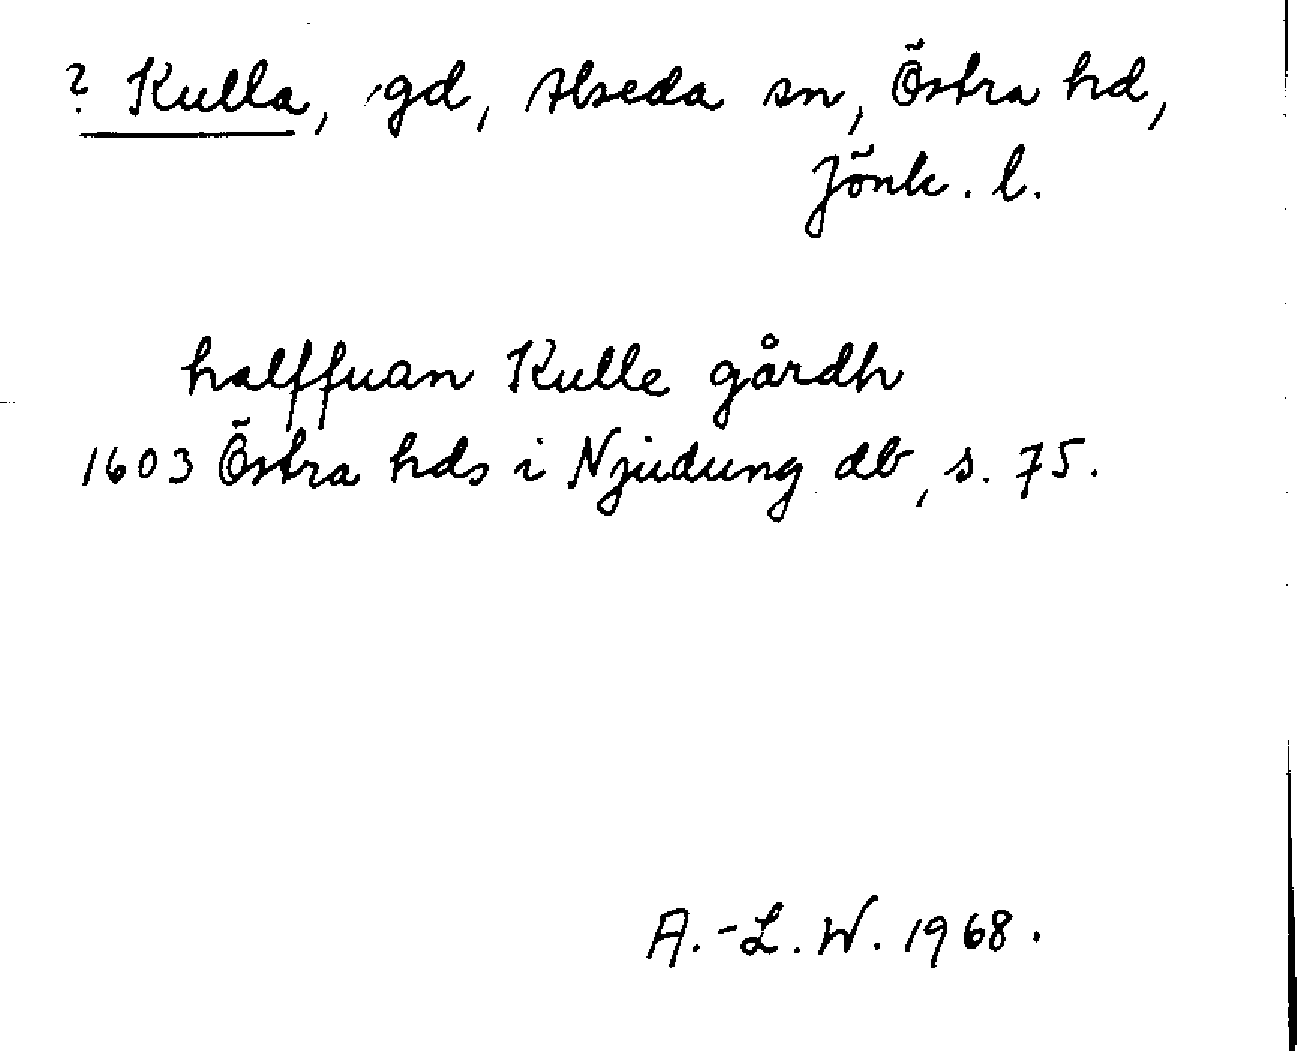 ? Kulla, gd, Alseda sn, Östra hd,
Jönk. l.
halffuan Kulle gårdh
1603 Östra hds i Njudung db, s. 75.
A.-L. W. 1968.